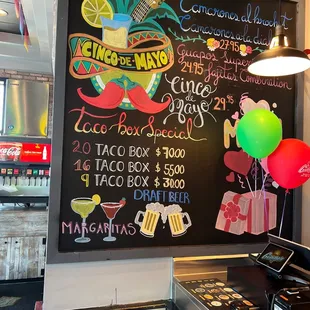 Camarones al brochet
Camarones a la diabla
27.95
Guapos Super
24.95
Fajitas Combination
29.95
CINCO-DE-MAYO
Cinco
de
Mayo
Taco box Special
20 TACO BOX $70.00
16 TACO BOX $55.00
9 TACO BOX $30.00
DRAFT BEER
MARGARITAS
Coca-Cola